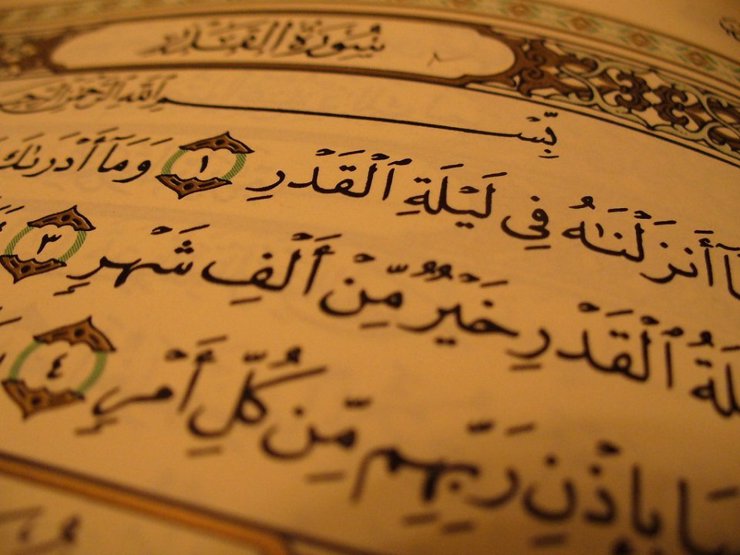 سُورَةُ القَدْرِ
بِسْمِ اللَّهِ الرَّحْمَٰنِ الرَّحِيمِ
أَنزَلْنَٰهُ فِي لَيْلَةِ ٱلْقَدْرِ ١ وَمَآ أَدْرَىٰكَ
ٱلْقَدْرِ خَيْرٌ مِّنْ أَلْفِ شَهْرٍ ٣
بِإِذْنِ رَبِّهِم مِّن كُلِّ أَمْرٍ ٤